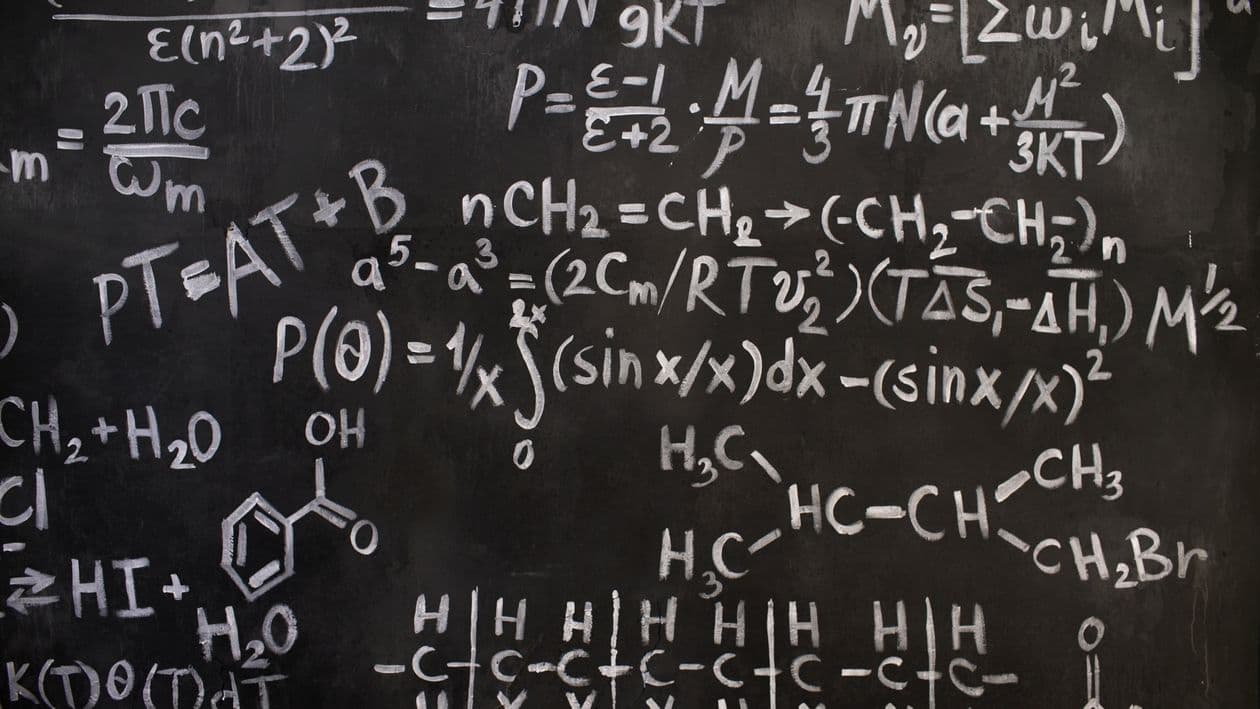 ε(n²+2)²
= 4πN 9KT
M_v=[Σw_iM_i]
P=ε-1/ε+2 · M/p=4/3 πN(a+M²/3KT)
m = 2πc/ω_m
PT=AT+B
nCH₂=CH₂→(-CH₂-CH₂-)n
a⁵-a³=(2Cm/RTv₂²)(TΔS₁-ΔH₁)M^1/2
P(θ)=1/x ∫₀²ˣ(sin x/x)dx-(sinx/x)²
CH₂+H₂O
Cl
OH
O
⇄HI+
H₂O
K(T)θ(T)dT
H₃C
CH₃
HC-CH
H₃C
CH₂Br
H H H H H H H H
-C-C-C-C-C-C-C-C-
O